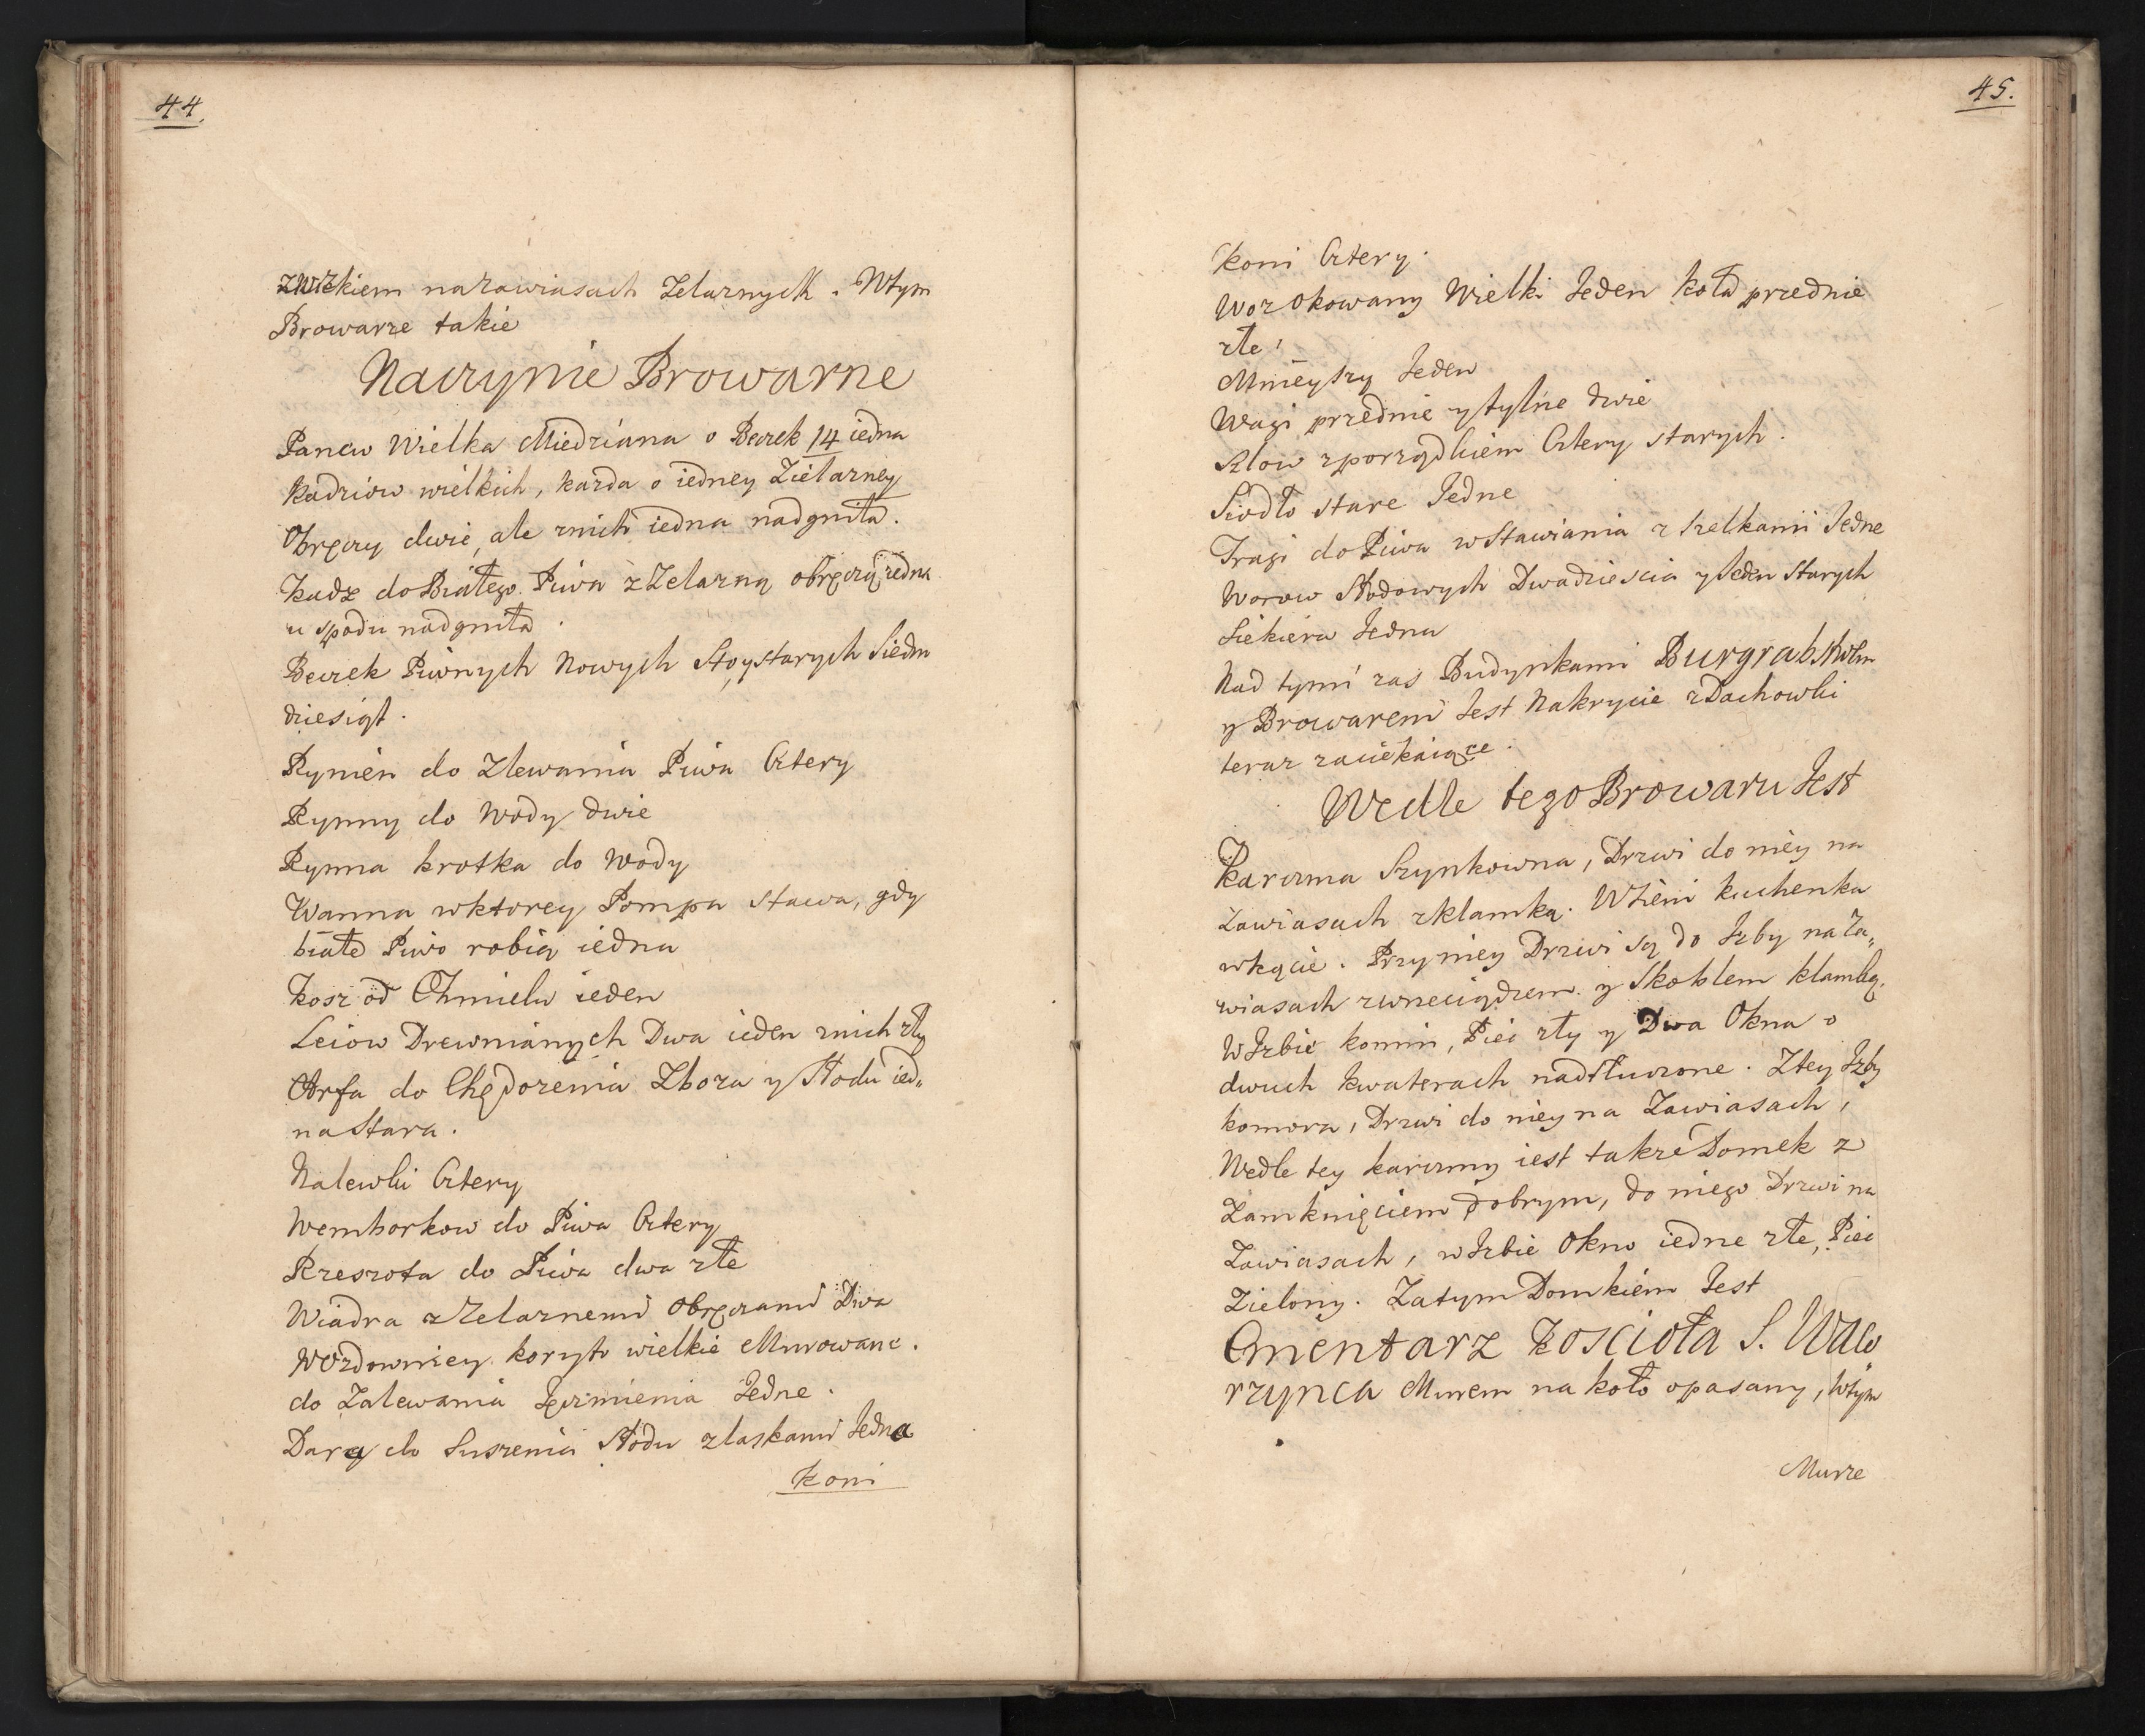 44.
zwrzkiem na zawiasach Zelaznych. W tym
Browarze takie
Naczynie Browarne
Panew Wielka Miedziana o Beczek 14 iedna
Kadziow wielkich, kazda o iedney Zielazney
Obręczy dwie, ale z nich iedna nadgniła.
Kadz do Białego Piwa z Zelazną obręczą jedna
u spodu nadgniła.
Beczek Piwnych Nowych Sto, y starych Siedm
dziesiąt.
Rynien do Zlewania Piwa Cztery
Rynny do Wody dwie
Rynna krotka do Wody
Wanna w ktorey Pompa stawa, gdy
białe Piwo robią iedna
Kosz od Chmielu ieden
Leiow Drewnianych Dwa ieden z nich zły
Arfa do Chędożenia Zboza y Słodu ied„
na Stara.
Nalewki Cztery
Wemborkow do Piwa Cztery
Rzeszota do Piwa dwa złe
Wiadra z Zelaznemi Obręczami Dwa
W Ozdowniey koryto wielkie Murowane.
do Zalewania Jęczmienia Jedne.
Dara do Suszenia Słodu z laskami Jedna
Koni
45.
Koni Cztery.
Woz Okowany Wielki Jeden koła przednie
złe,
Mnieyszy Jeden
Wagi przednie y tylne dwie
Szlow z porządkiem Cztery starych.
Siodło stare Jedne
Tragi do Piwa wstawiania z szelkami Jedne
Worow Słodowych Dwadziescia y Jeden Starych
Siekiera Jedna
Nad tymi zas Budynkami Burgrabstwem
y Browarem Jest Nakrycie z Dachowki
teraz zaciekaiące.
Wedle tego Browaru Jest
Karczma Szynkowna, Drzwi do niey na
zawiasach z klamką. W Sieni kuchenka
w kącie. Przy niey Drzwi są do Izby na Za„
wiasach z wneciądzem y Skoblem klamką.
W Izbie komin, Piec zły y Dwa Okna o
dwuch kwaterach nadtłuczone. Z tey Izby
komora, Drzwi do niey na Zawiasach,
Wedle tey karczmy iest takze Domek z
Zamknięciem dobrym, do niego Drzwi na
Zawiasach, w Izbie Okno iedne złe, Piec
Zielony. Za tym Domkiem Jest
Cmentarz Koscioła S. Waw
rzynca Murem na koło opasany, W tym
Murze